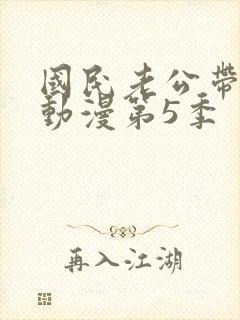 國民老公帶
動漫第5季
再入江湖